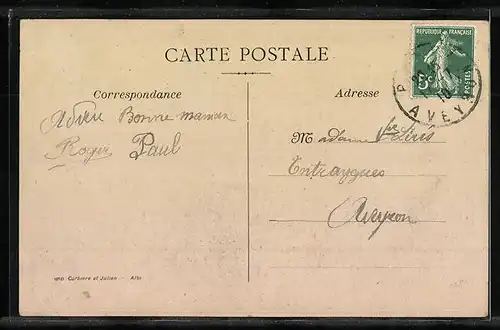 CARTE POSTALE
Correspondance
Adresse
RÉPUBLIQUE FRANÇAISE
5c
POSTES
AVEY
Adieu Bonne maman
Roger Paul
Madame
Entraygues
Aveyron
Carbière et Julien - Albi